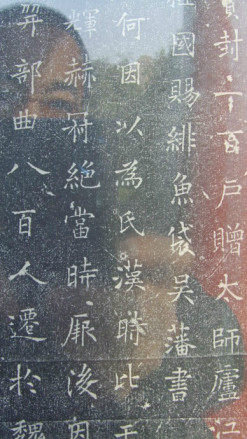 實封二百戶贈太師廬江
國賜緋魚袋吳藩書
何因以為氏漢時比干
輝赫冠絕當時厥後因
部曲八百人遷於魏